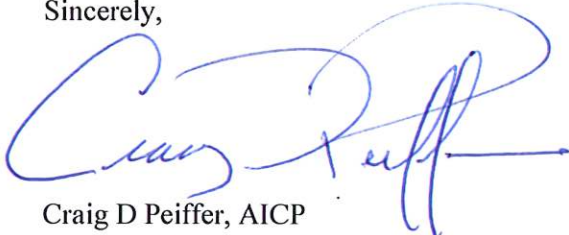 Sincerely,
Craig Peiffer
Craig D Peiffer, AICP